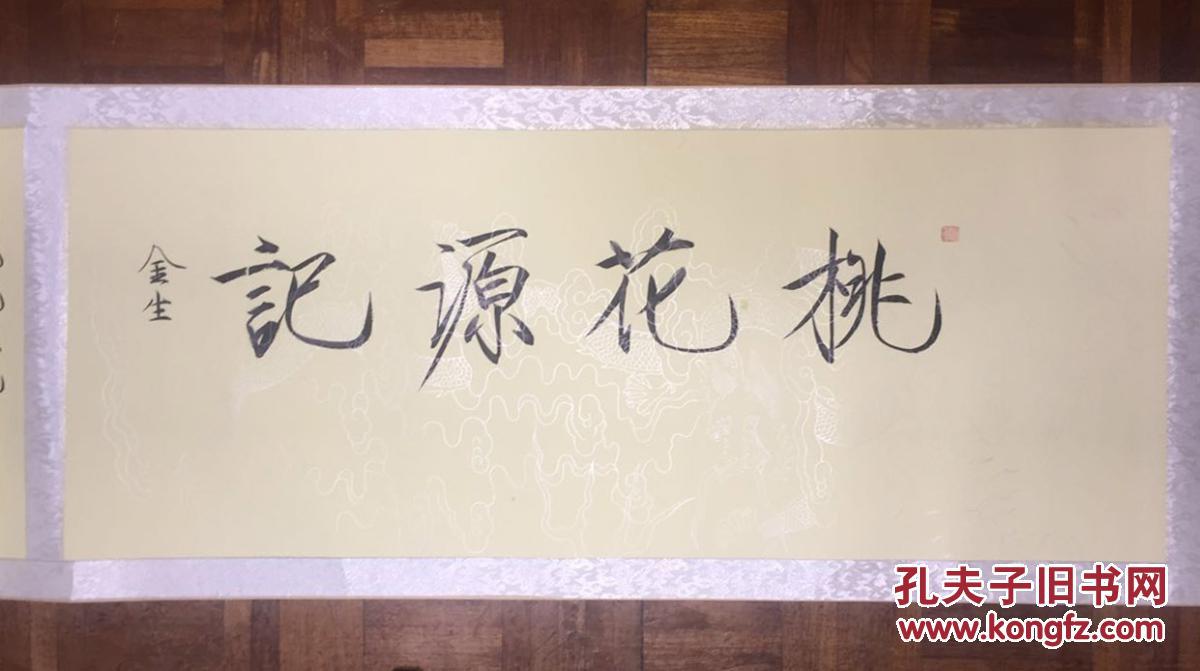 桃花源記
金生
孔夫子旧书网
www.kongfz.com